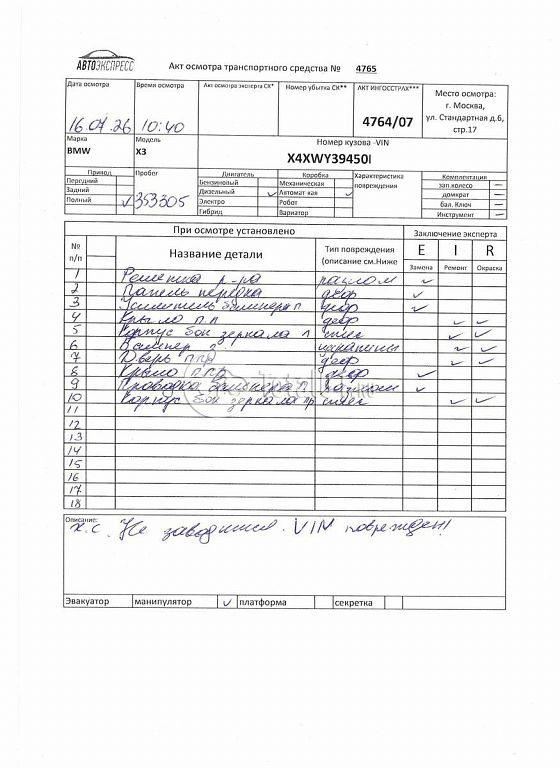 АВТОЭКСПРЕСС
Акт осмотра транспортного средства № 4765
Дата осмотра Время осмотра Акт осмотра эксперта СК* Номер убытка СК** АКТ ИНГОССТРАХ*** Место осмотра:
г. Москва,
16.07.26 10:40 4764/07 ул. Стандартная д.6,
стр.17
Марка Модель Номер кузова -VIN
BMW X3 X4XWY39450I
Привод Пробег Двигатель Коробка Характеристика повреждения Комплектация
Передний Бензиновый Механическая зап.колесо —
Задний Дизельный ✓ Автомат-кая ✓ домкрат
Полный ✓ 353305 Электро Робот бал. Ключ —
Гибрид Вариатор Инструмент —
При осмотре установлено Заключение эксперта
№ п/п Название детали Тип повреждения (описание см.Ниже E I R
Замена Ремонт Окраска
1 Решетка р-ра разлом ✓
2 Панель передка деф ✓
3 Усилитель бампера п деф ✓
4 Крыло п.п деф ✓ ✓
5 Корпус бок зеркала л ✓ ✓
6 Бампер з. царапины ✓ ✓
7 Дверь ппр деф ✓ ✓
8 Крыло ппр деф ✓
9 Проводка бампера п ✓
10 Корпус бок зеркала пр ✓ ✓
11
12
13
14
15
16
17
18
Описание:
х.с. Не заводится. VIN поврежден!
Эвакуатор манипулятор ✓ платформа секретка